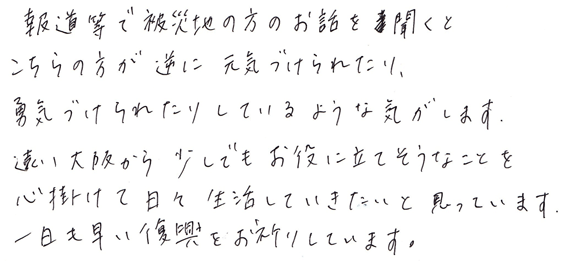 報道等で被災地の方のお話を聞くと
こちらの方が逆に元気づけられたり、
勇気づけられたりしているような気がします.
遠い大阪から少しでもお役に立てそうなことを
心掛けて日々生活していきたいと思っています.
一日も早い復興をお祈りしています。